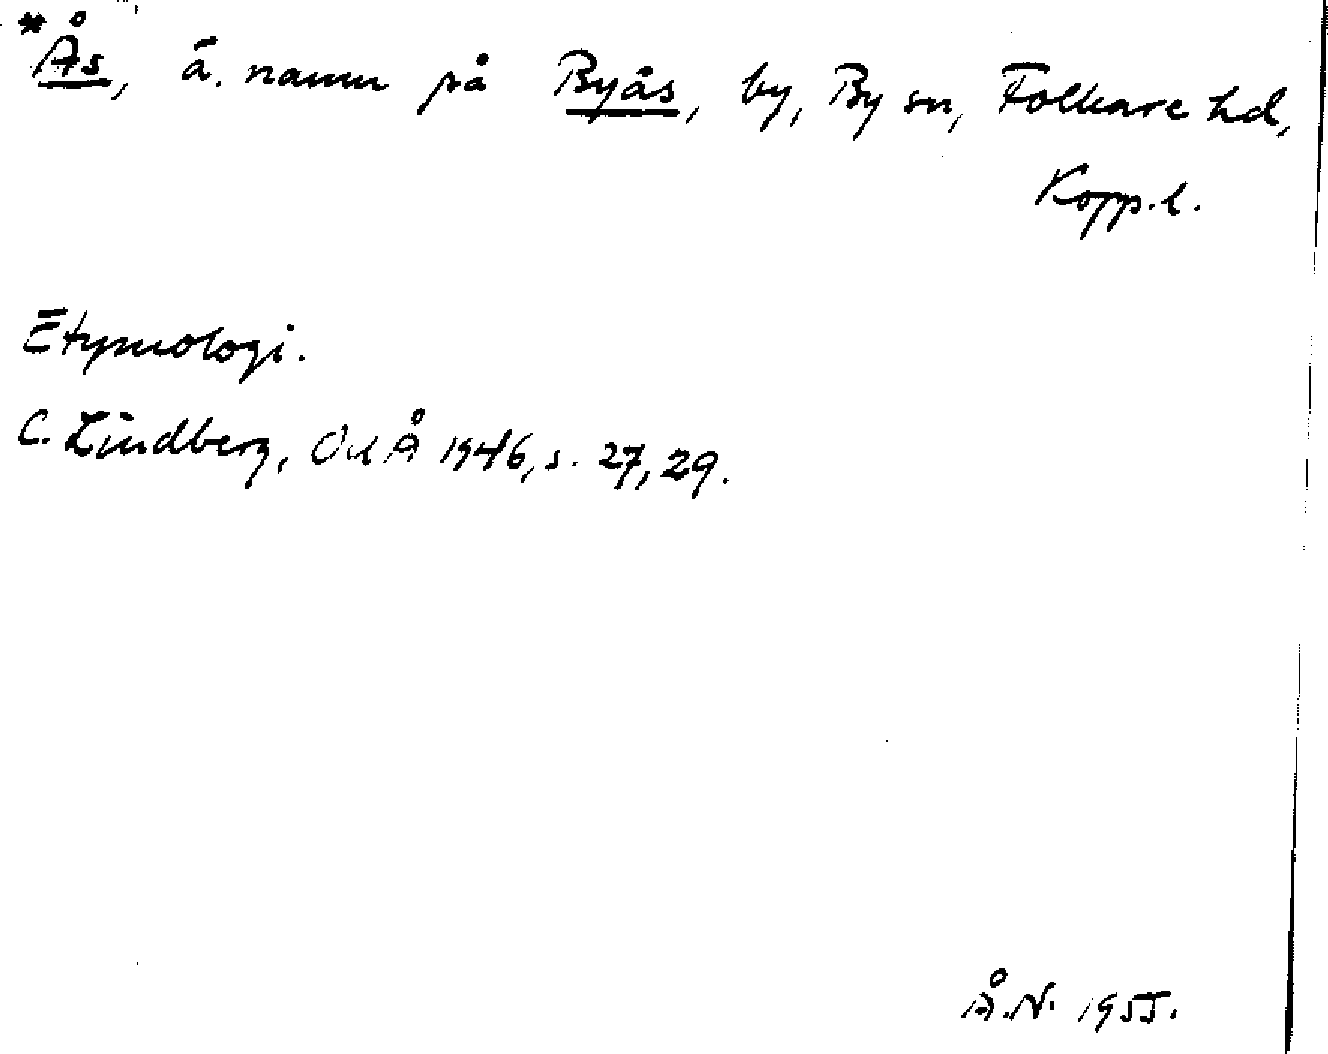 *Ås, ä. namn på Byås, by, By sn, Folkare hd,
Kopp.l.
Etymologi.
C. Lindberg, OuÅ 1946, s. 27, 29.
Å.N. 1955.